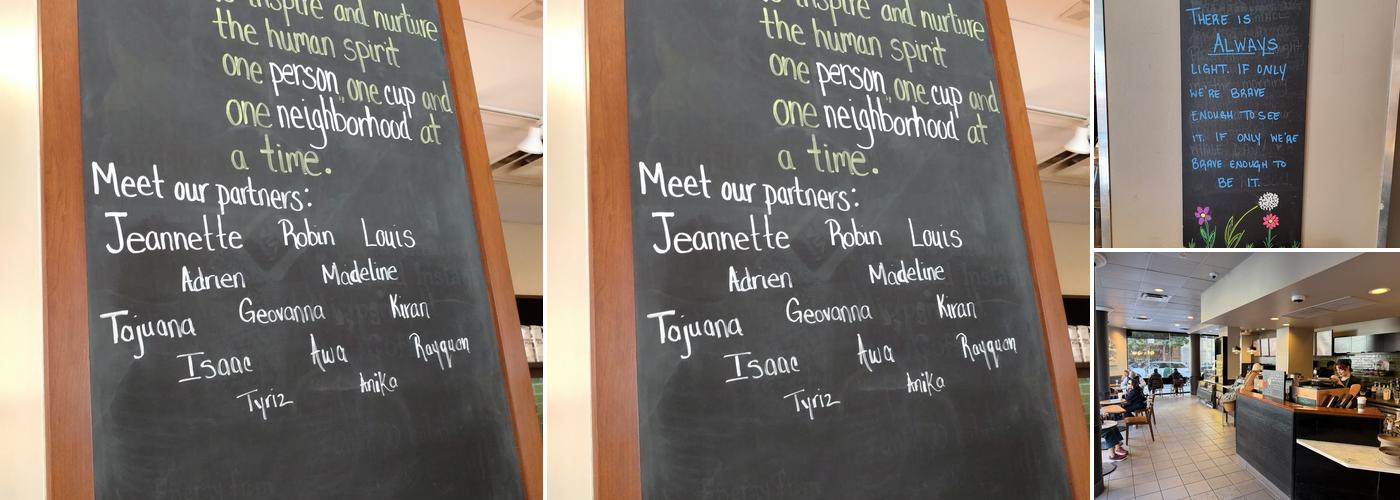 to inspire and nurture
the human spirit
one person, one cup and
one neighborhood at
a time.
Meet our partners:
Jeannette Robin Louis
Adrien Madeline
Tajuana Geovanna Kiran
Isaac Awa Rayquan
Tyriz Anika
to inspire and nurture
the human spirit
one person, one cup and
one neighborhood at
a time.
Meet our partners:
Jeannette Robin Louis
Adrien Madeline
Tajuana Geovanna Kiran
Isaac Awa Rayquan
Tyriz Anika
THERE IS
ALWAYS
LIGHT. IF ONLY
WE'RE BRAVE
ENOUGH TO SEE
IT. IF ONLY WE'RE
BRAVE ENOUGH TO
BE IT.